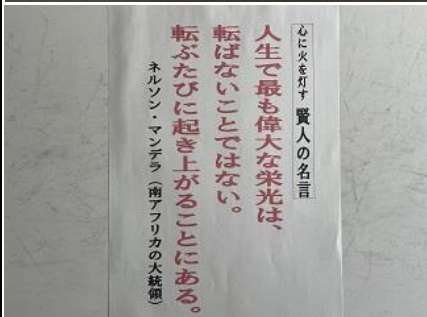 心に火を灯す 賢人の名言
人生で最も偉大な栄光は、
転ばないことではない。
転ぶたびに起き上がることにある。
ネルソン・マンデラ（南アフリカの大統領）